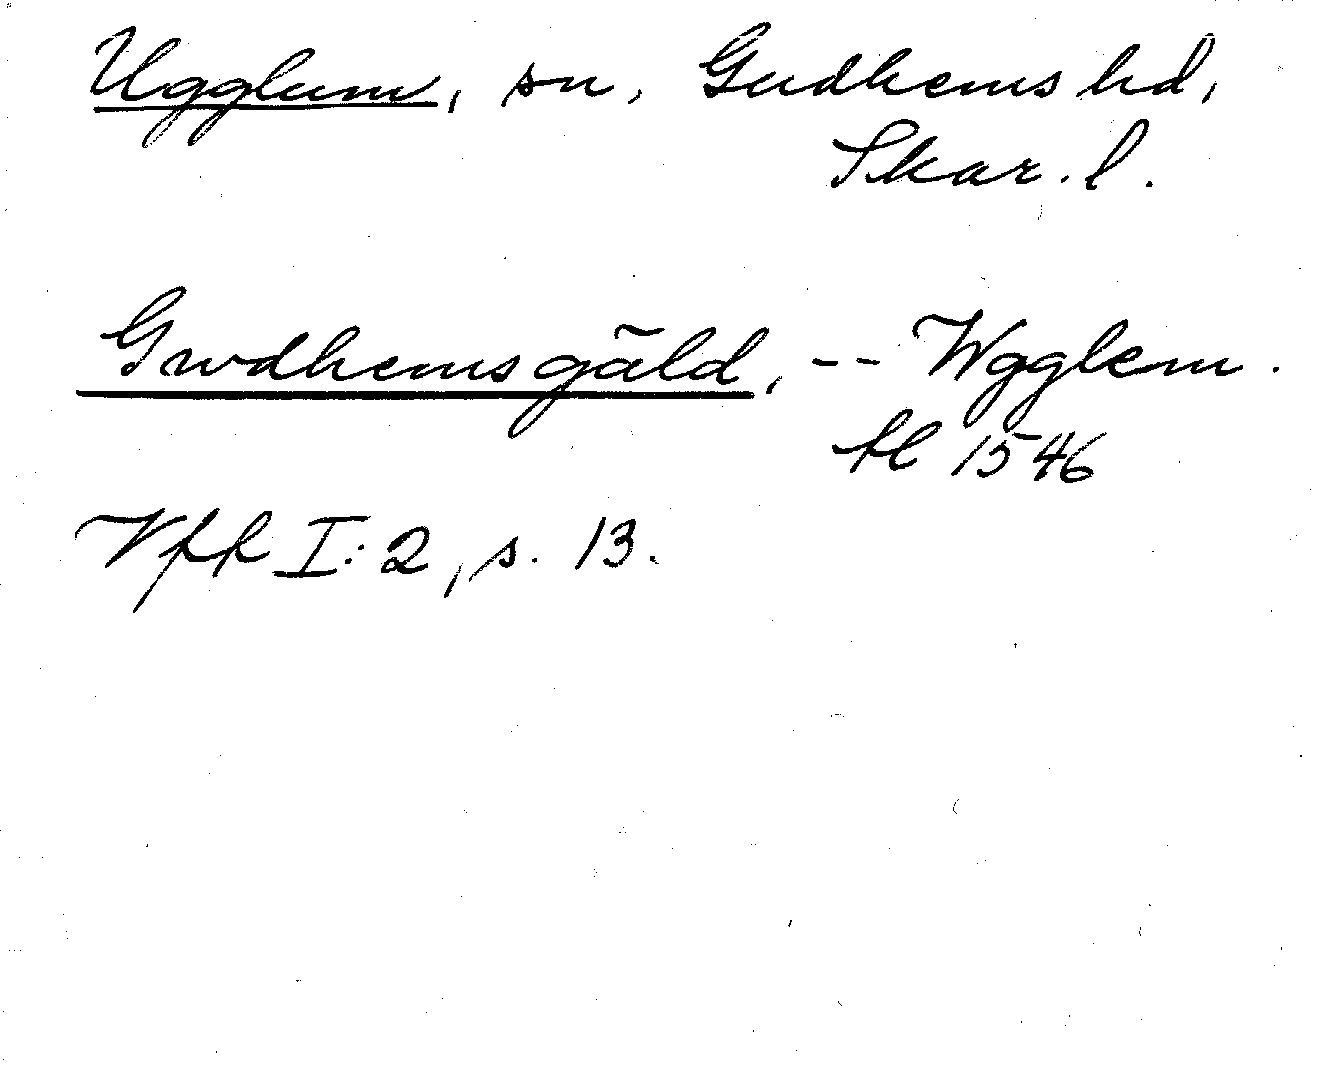 Ugglum, sn, Gudhems hd,
Skar. l.
Gwdhemsgäld, -- Wgglem.
tl 1546
Vfk I:2, s. 13.